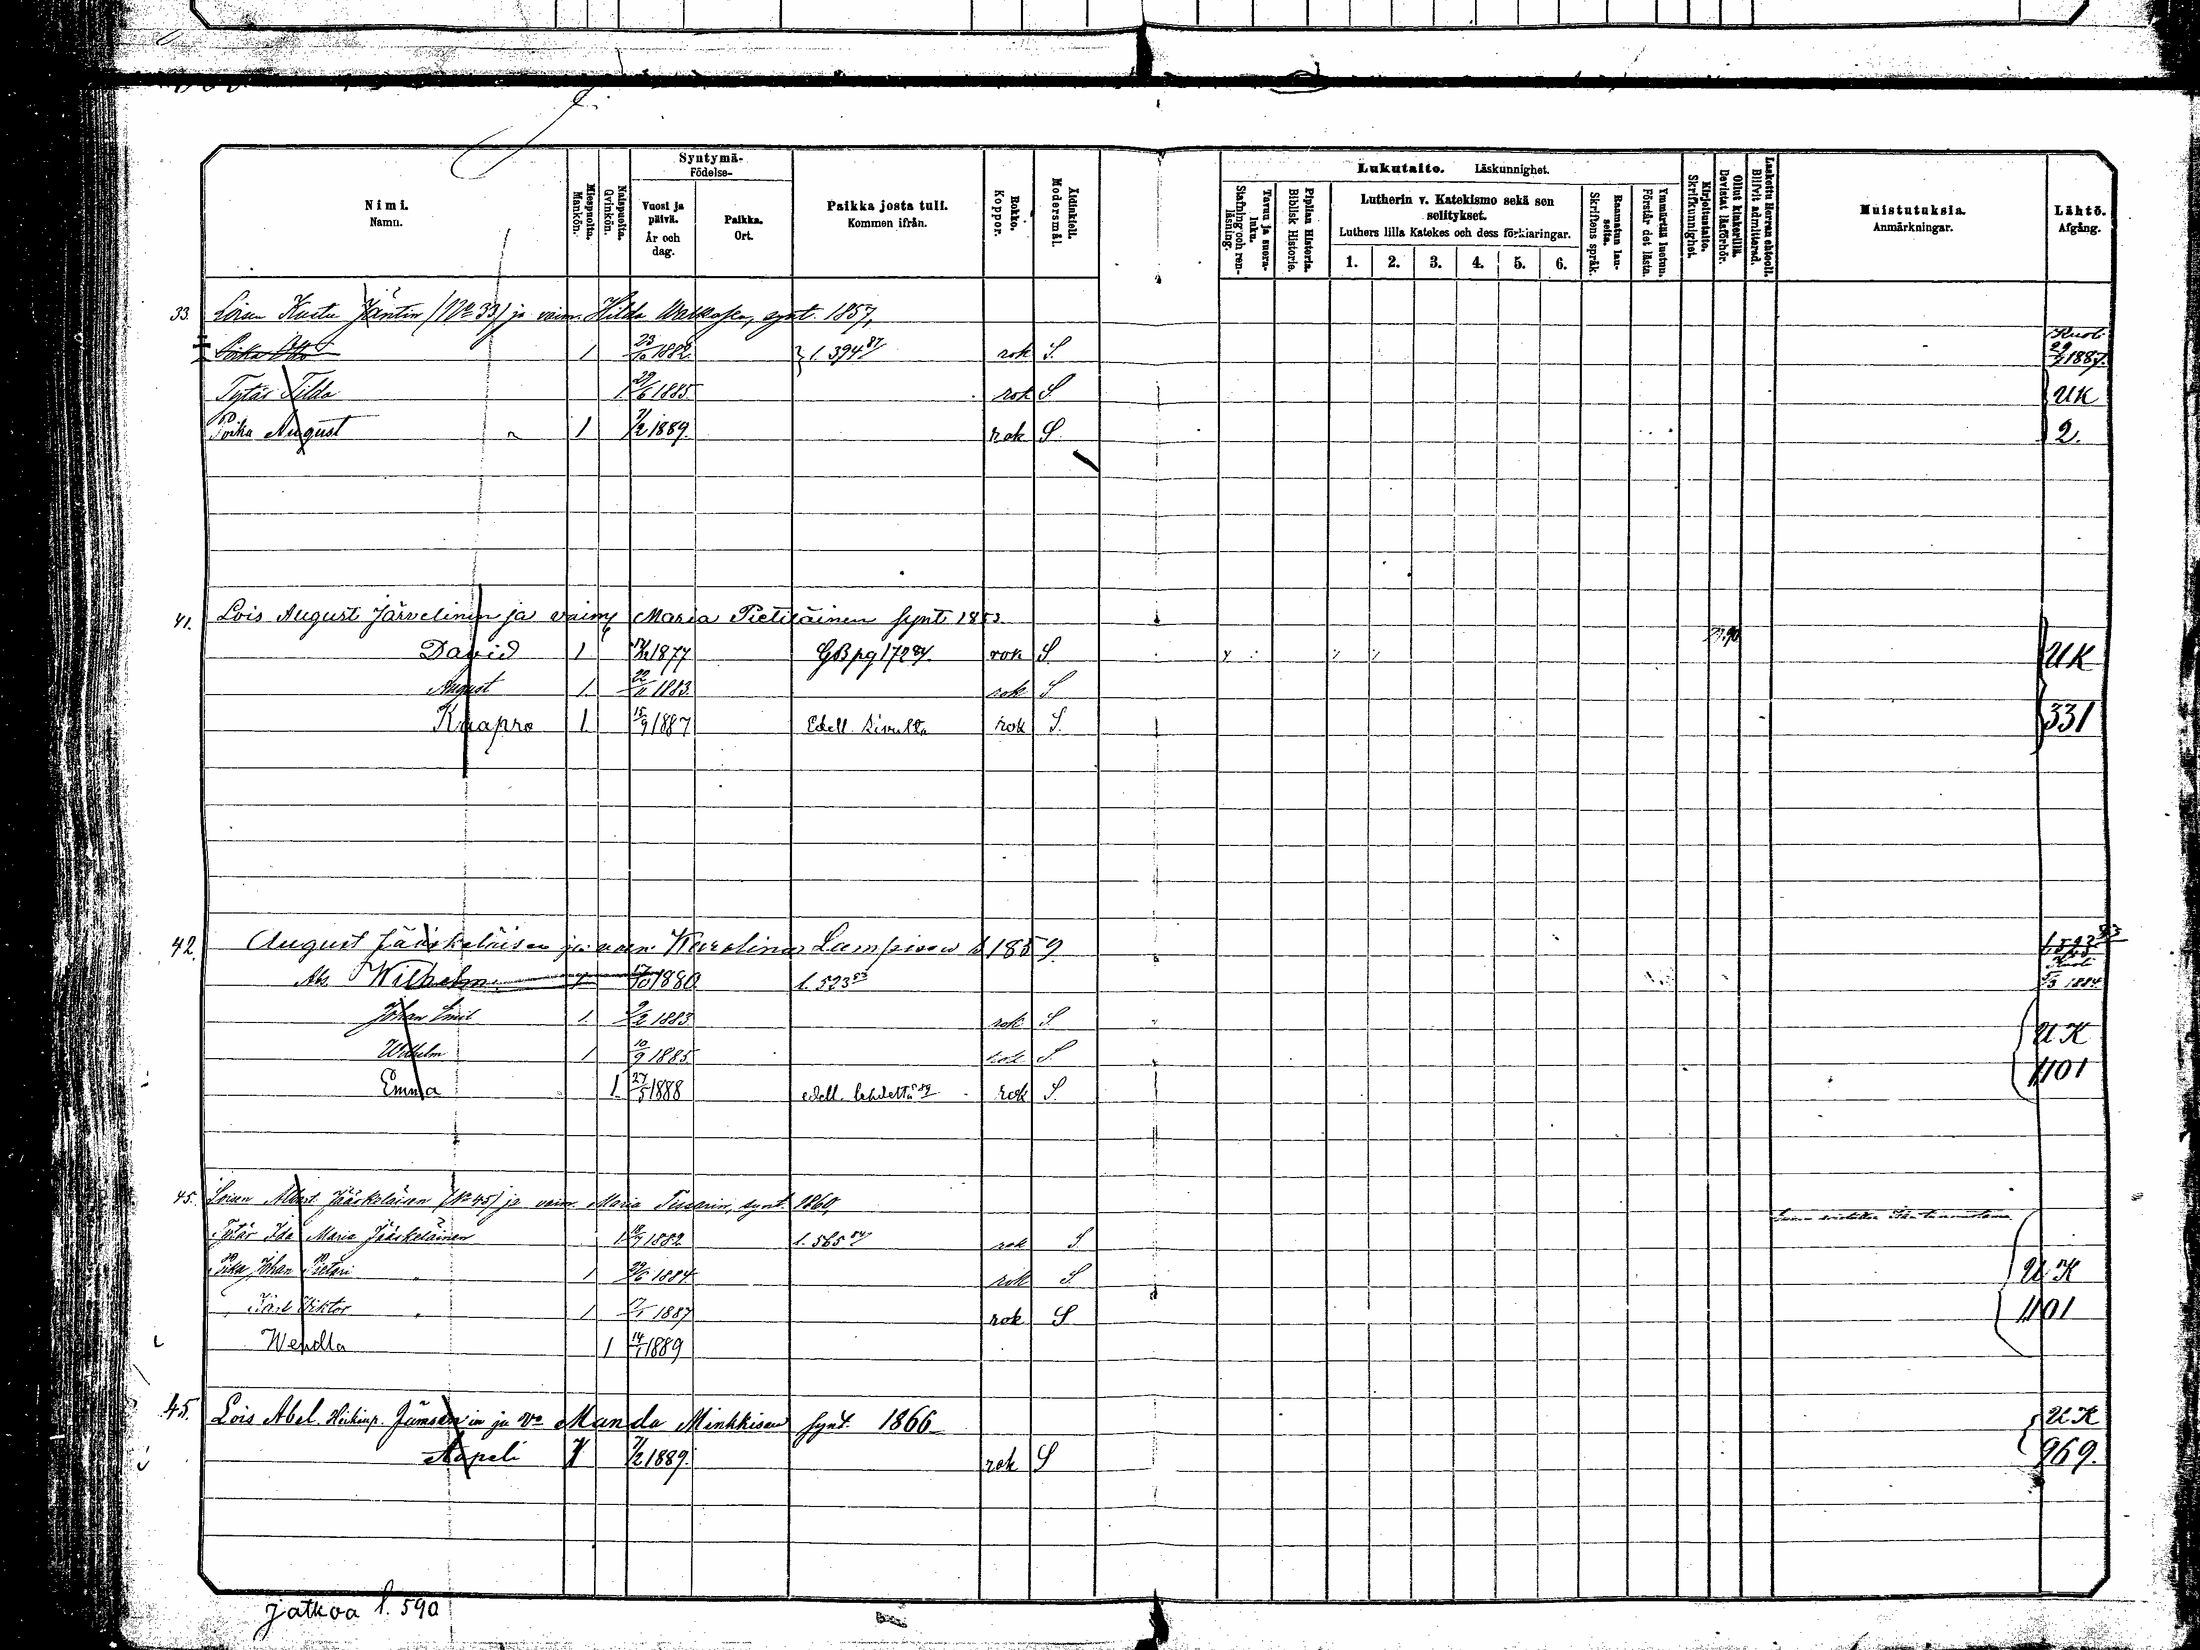 Syntymä-
Födelse-
Lukutaito. Läskunnighet.
Nimi.
Namn.
Miespuolia.
Mankön.
Naispuolia.
Qvinkön.
Vuosi ja päivä.
År och dag.
Paikka.
Ort.
Paikka josta tuli.
Kommen ifrån.
Rokko.
Koppor.
Äidinkieli.
Modersmål.
Tavuu ja suora-luku.
Stafning och ren-läsning.
Piplian Historia.
Biblisk Historie.
Lutherin v. Katekismo sekä sen selitykset.
Luthers lilla Katekes och dess förklaringar.
1. 2. 3. 4. 5. 6.
Raamatun lau-seita.
Skriftens språk.
Ymmärtää luetun.
Förstår det lästa.
Kirjoitustaito.
Skrifkunnighet.
Ollut kinkerillä.
Bevistat läsförhör.
Laskettu Herran ehtooll.
Blifvit admitterad.
Muistutuksia.
Anmärkningar.
Lähtö.
Afgång.
33. Loisen Kustu Jäntin (No 33) ja vaim. Hilda synt. 1857,
Poika Otto 1 23/10 1882 l. 394 87 rok S. Kuoli 1887.
Tytär Tilda 1 29/6 1885. rok S UK
Poika August 1 7/2 1889. rok S. 2.
41. Lois August Järvelinin ja vaimo Maria Pietiläinen synt 1853
David 1 1877 GB pg 172 rok S. UK
August 1. 22/11 1883. rok S
Knapro 1 15/9 1887 Edell. sivulta rok S. 331
42. August Jääskeläisen ja vaim. Karolina Lampisen s. 1859.
Wilhelm 1880 l. 523 83 Kuoli 5/3 1884
Johan Emil 1. 9/2 1883 rok S.
Wilhelm 1 10/9 1885 rok S UK
Emma 1. 27/5 1888 edell. lehdeltä 89 rok S 1101
45. Loisen Albert Jääskeläisen (No 45) ja vaim. Maria Tussarin, synt. 1860,
Tytär Ida Maria Jääskeläinen 1. 1882 l. 565 rok S
Poika Johan Pietari 1 1884 rok S UK
Karl Viktor 1 1887 rok S 1101
Wendla 1 14/1 1889
45. Lois Abel. Heikinp. Jämsän in ja vo Manda Minkkisen synt. 1866 UK
Aapeli 7/2 1889. rok S 969.
jatkoa l. 590